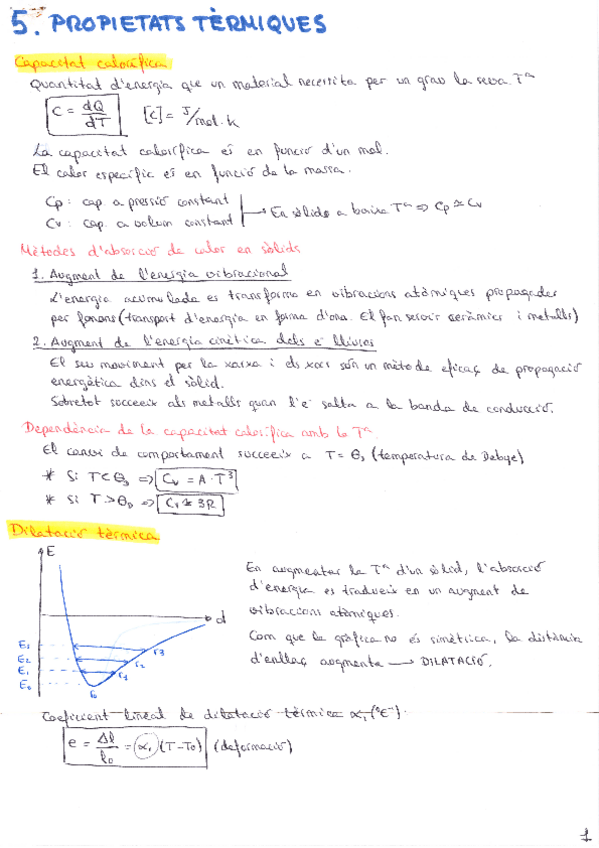 5. PROPIETATS TÈRMIQUES
Capacitat calorífica
Quantitat d'energia que un material necessita per un grau la seva Tª
C = dQ/dT [C] = J/mol·k
La capacitat calorífica és en funció d'un mol.
El calor específic és en funció de la massa.
Cp: cap. a pressió constant
Cv: cap. a volum constant
En sòlids a baixa Tª => Cp ≃ Cv
Mètodes d'absorció de calor en sòlids
1. Augment de l'energia vibracional
L'energia acumulada es transforma en vibracions atòmiques propagades
per fonons (transport d'energia en forma d'ona. El fan servir ceràmics i metalls)
2. Augment de l'energia cinètica dels e⁻ lliures
El seu moviment per la xarxa i els xocs són un mètode eficaç de propagació
energètica dins el sòlid.
Sobretot succeeix als metalls quan l'e⁻ salta a la banda de conducció.
Dependència de la capacitat calorífica amb la Tª
El canvi de comportament succeeix a T = θD (temperatura de Debye)
* Si T<θD => Cv = A·T³
* Si T>θD => Cv ≃ 3R
Dilatació tèrmica
E
d
E3
E2
E1
E0
r3
r2
r1
r0
En augmentar la Tª d'un sòlid, l'absorció
d'energia es tradueix en un augment de
vibracions atòmiques.
Com que la gràfica no és simètrica, la distància
d'enllaç augmenta → DILATACIÓ.
Coeficient lineal de dilatació tèrmica α₁ (ºC⁻¹)
e = Δl/l0 = α₁ (T-T0) (deformació)
1